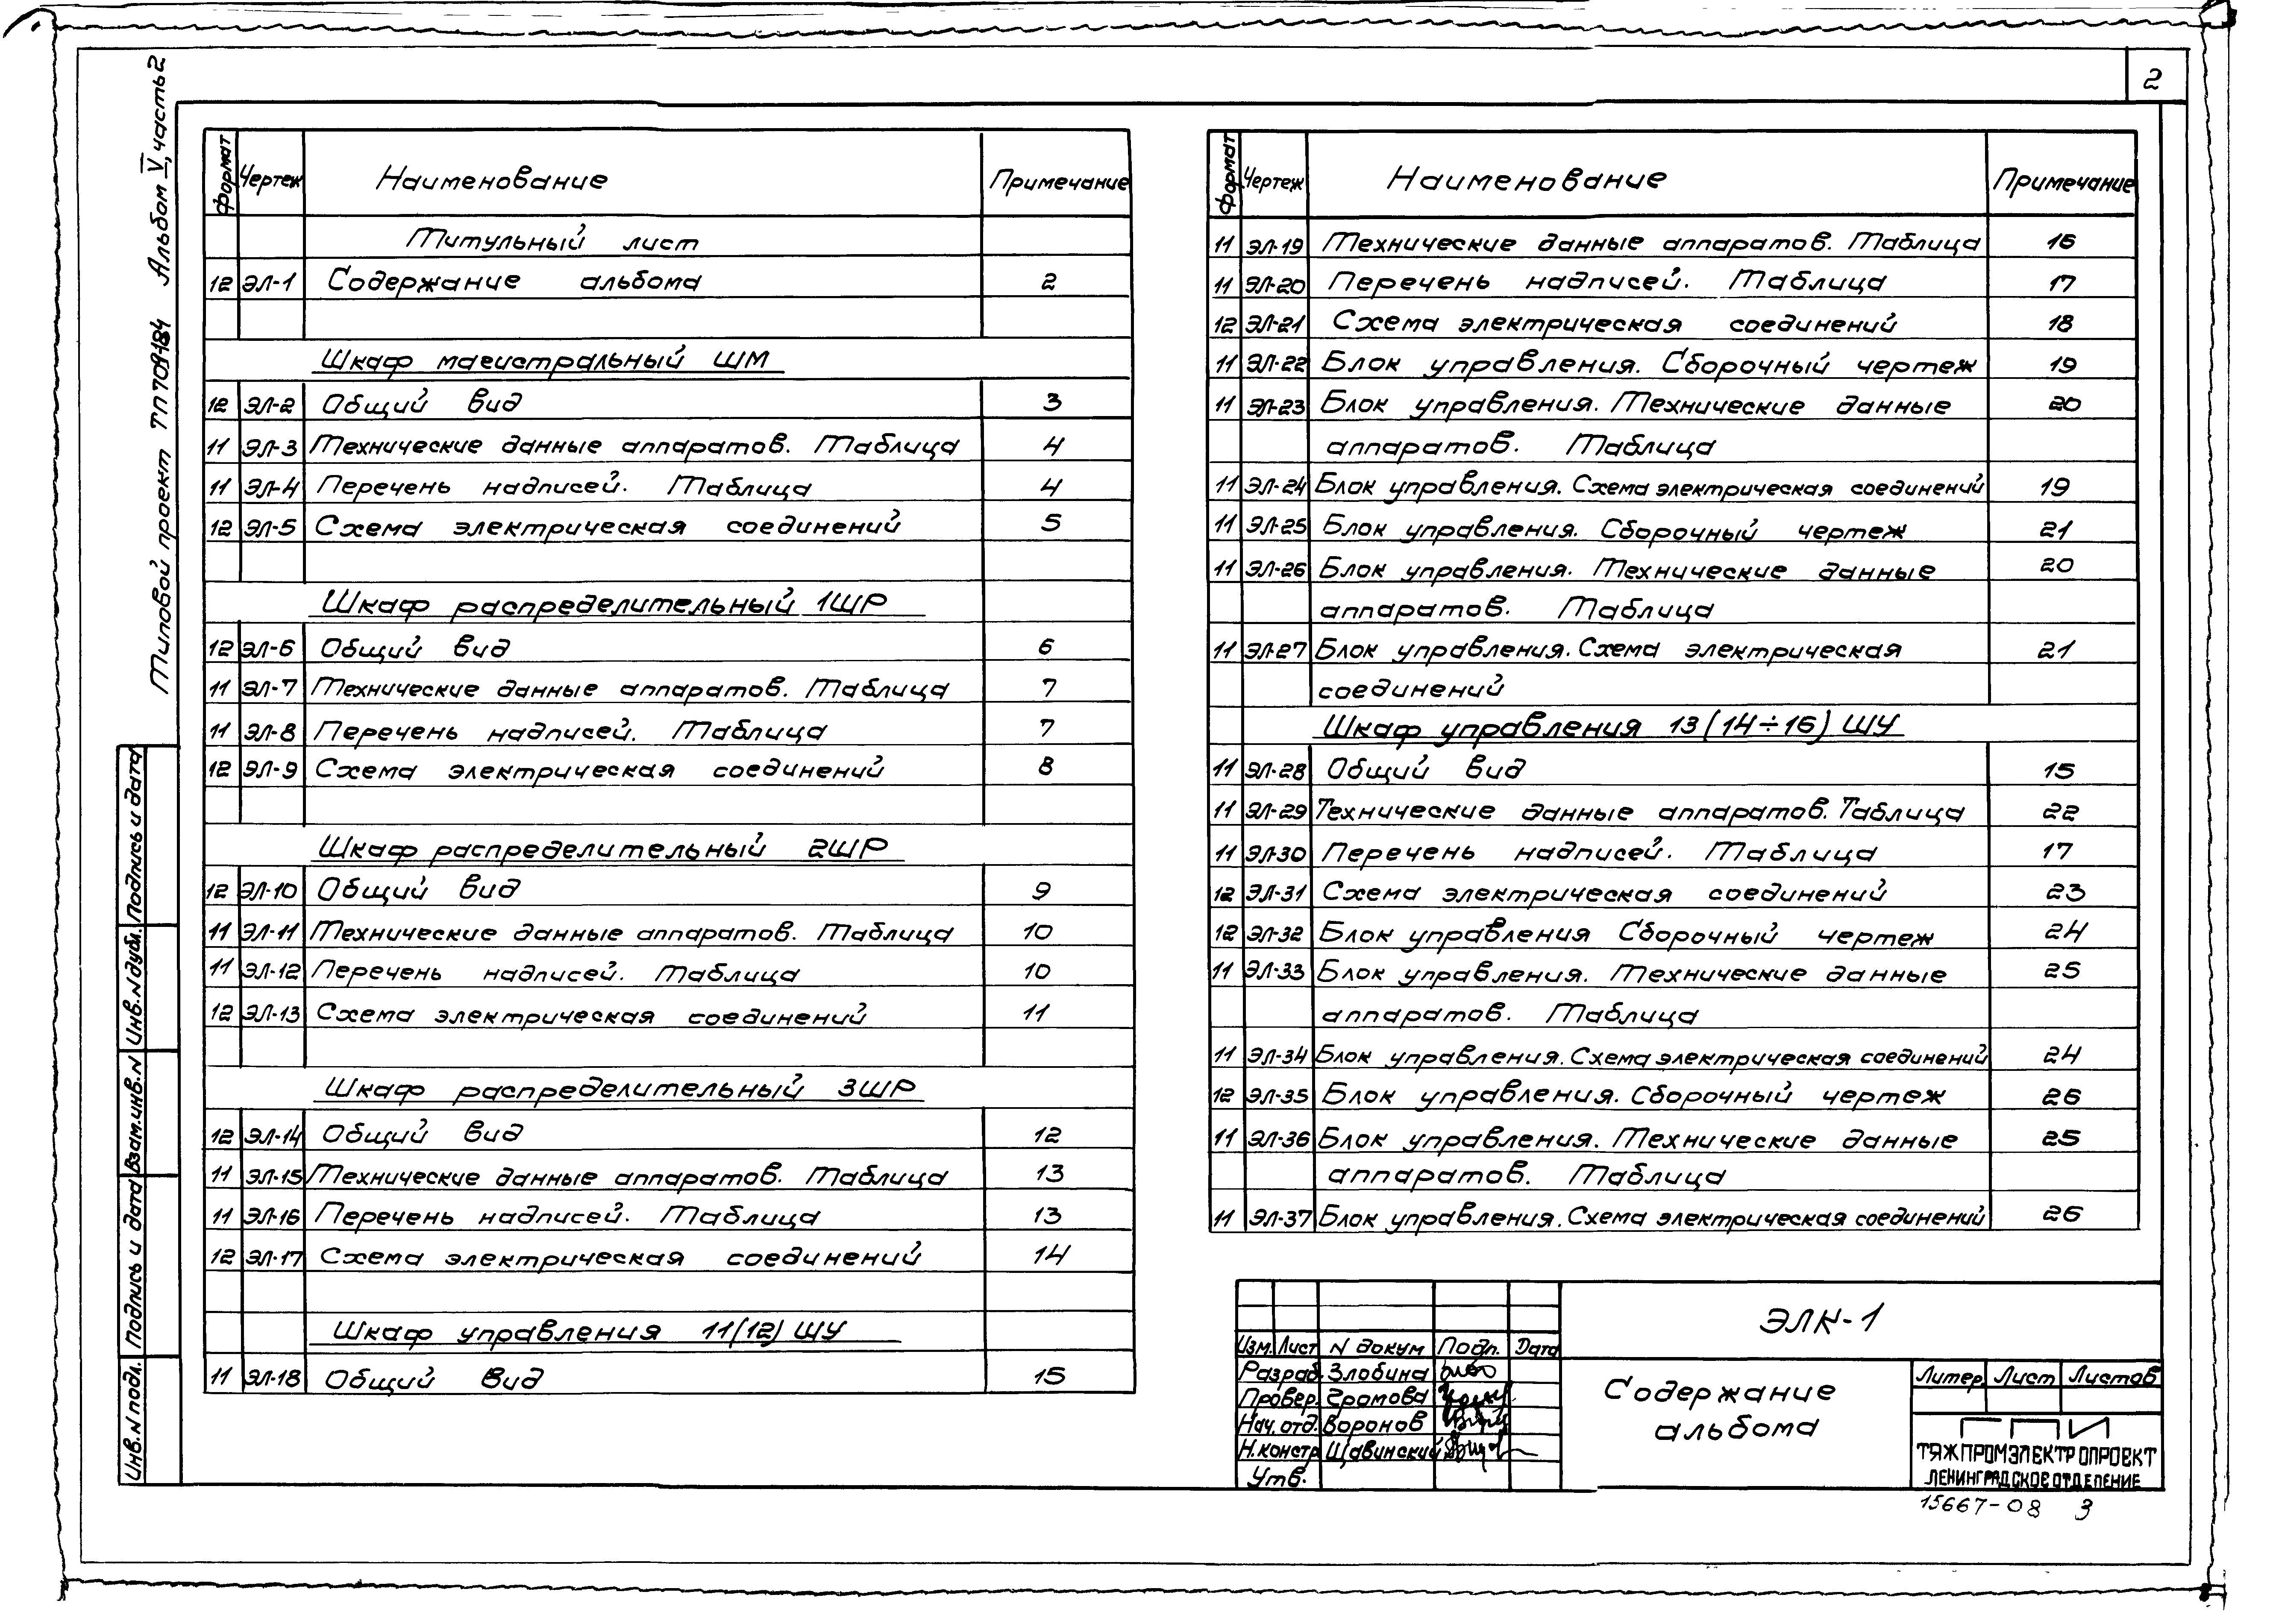 2
Типовой проект ТП 709-184 Альбом V, часть 2
Формат Чертеж Наименование Примечание
Титульный лист
12 ЭЛ-1 Содержание альбома 2
Шкаф магистральный ШМ
12 ЭЛ-2 Общий вид 3
11 ЭЛ-3 Технические данные аппаратов. Таблица 4
11 ЭЛ-4 Перечень надписей. Таблица 4
12 ЭЛ-5 Схема электрическая соединений 5
Шкаф распределительный 1ШР
12 ЭЛ-6 Общий вид 6
11 ЭЛ-7 Технические данные аппаратов. Таблица 7
11 ЭЛ-8 Перечень надписей. Таблица 7
12 ЭЛ-9 Схема электрическая соединений 8
Шкаф распределительный 2ШР
12 ЭЛ-10 Общий вид 9
11 ЭЛ-11 Технические данные аппаратов. Таблица 10
11 ЭЛ-12 Перечень надписей. Таблица 10
12 ЭЛ-13 Схема электрическая соединений 11
Шкаф распределительный 3ШР
12 ЭЛ-14 Общий вид 12
11 ЭЛ-15 Технические данные аппаратов. Таблица 13
11 ЭЛ-16 Перечень надписей. Таблица 13
12 ЭЛ-17 Схема электрическая соединений 14
Шкаф управления 11(12) ШУ
11 ЭЛ-18 Общий вид 15
Формат Чертеж Наименование Примечание
11 ЭЛ-19 Технические данные аппаратов. Таблица 16
11 ЭЛ-20 Перечень надписей. Таблица 17
12 ЭЛ-21 Схема электрическая соединений 18
11 ЭЛ-22 Блок управления. Сборочный чертеж 19
11 ЭЛ-23 Блок управления. Технические данные 20
аппаратов. Таблица
11 ЭЛ-24 Блок управления. Схема электрическая соединений 19
11 ЭЛ-25 Блок управления. Сборочный чертеж 21
11 ЭЛ-26 Блок управления. Технические данные 20
аппаратов. Таблица
11 ЭЛ-27 Блок управления. Схема электрическая 21
соединений
Шкаф управления 13(14÷16) ШУ
11 ЭЛ-28 Общий вид 15
11 ЭЛ-29 Технические данные аппаратов. Таблица 22
11 ЭЛ-30 Перечень надписей. Таблица 17
12 ЭЛ-31 Схема электрическая соединений 23
12 ЭЛ-32 Блок управления Сборочный чертеж 24
11 ЭЛ-33 Блок управления. Технические данные 25
аппаратов. Таблица
11 ЭЛ-34 Блок управления. Схема электрическая соединений 24
12 ЭЛ-35 Блок управления. Сборочный чертеж 26
11 ЭЛ-36 Блок управления. Технические данные 25
аппаратов. Таблица
11 ЭЛ-37 Блок управления. Схема электрическая соединений 26
Инв. N подл. Подпись и дата Взам. инв. N Инв. N дубл. Подпись и дата
ЭЛК-1
Изм. Лист N докум Подп. Дата
Разраб. Злобина
Провер. Громова
Нач. отд. Воронов
Н. констр Щавинский
Утв.
Содержание
альбома
Литер. Лист Листов
ГПИ
ТЯЖПРОМЭЛЕКТРОПРОЕКТ
ЛЕНИНГРАДСКОЕ ОТДЕЛЕНИЕ
15667-08 3